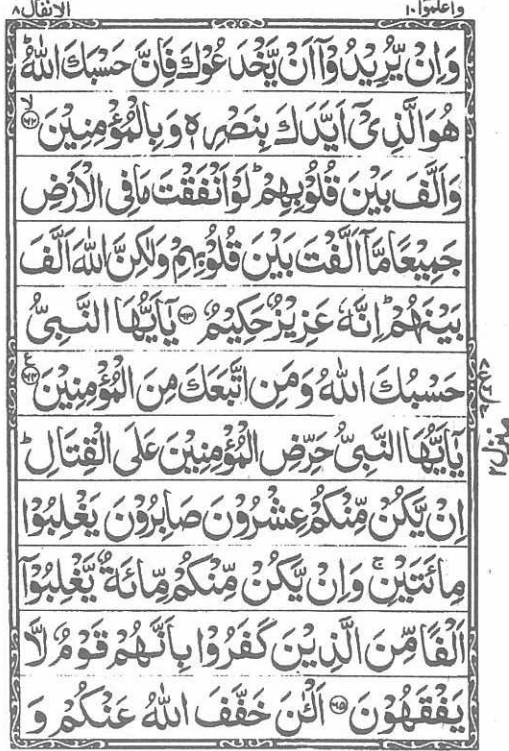 واعلموا ١٠
الانفال ٨
وَاِنْ يُّرِيْدُوْۤا اَنْ يَّخْدَعُوْكَ فَاِنَّ حَسْبَكَ اللّٰهُ ؕ
هُوَ الَّذِيْۤ اَيَّدَكَ بِنَصْرِهٖ وَبِالْمُؤْمِنِيْنَ ۙ﴿۶۲﴾
وَاَلَّفَ بَيْنَ قُلُوْبِهِمْ ؕ لَوْ اَنْفَقْتَ مَا فِي الْاَرْضِ
جَمِيْعًا مَّاۤ اَلَّفْتَ بَيْنَ قُلُوْبِهِمْ وَلٰكِنَّ اللّٰهَ اَلَّفَ
بَيْنَهُمْ ؕ اِنَّهٗ عَزِيْزٌ حَكِيْمٌ ﴿۶۳﴾ يٰۤاَيُّهَا النَّبِيُّ
حَسْبُكَ اللّٰهُ وَمَنِ اتَّبَعَكَ مِنَ الْمُؤْمِنِيْنَ ﴿۶۴﴾ ع
يٰۤاَيُّهَا النَّبِيُّ حَرِّضِ الْمُؤْمِنِيْنَ عَلَى الْقِتَالِ ؕ
اِنْ يَّكُنْ مِّنْكُمْ عِشْرُوْنَ صَابِرُوْنَ يَغْلِبُوْا
مِائَتَيْنِ ۚ وَاِنْ يَّكُنْ مِّنْكُمْ مِّائَةٌ يَّغْلِبُوْۤا
اَلْفًا مِّنَ الَّذِيْنَ كَفَرُوْا بِاَنَّهُمْ قَوْمٌ لَّا
يَفْقَهُوْنَ ﴿۶۵﴾ اَلْـٰٔنَ خَفَّفَ اللّٰهُ عَنْكُمْ وَ
منزل ٢